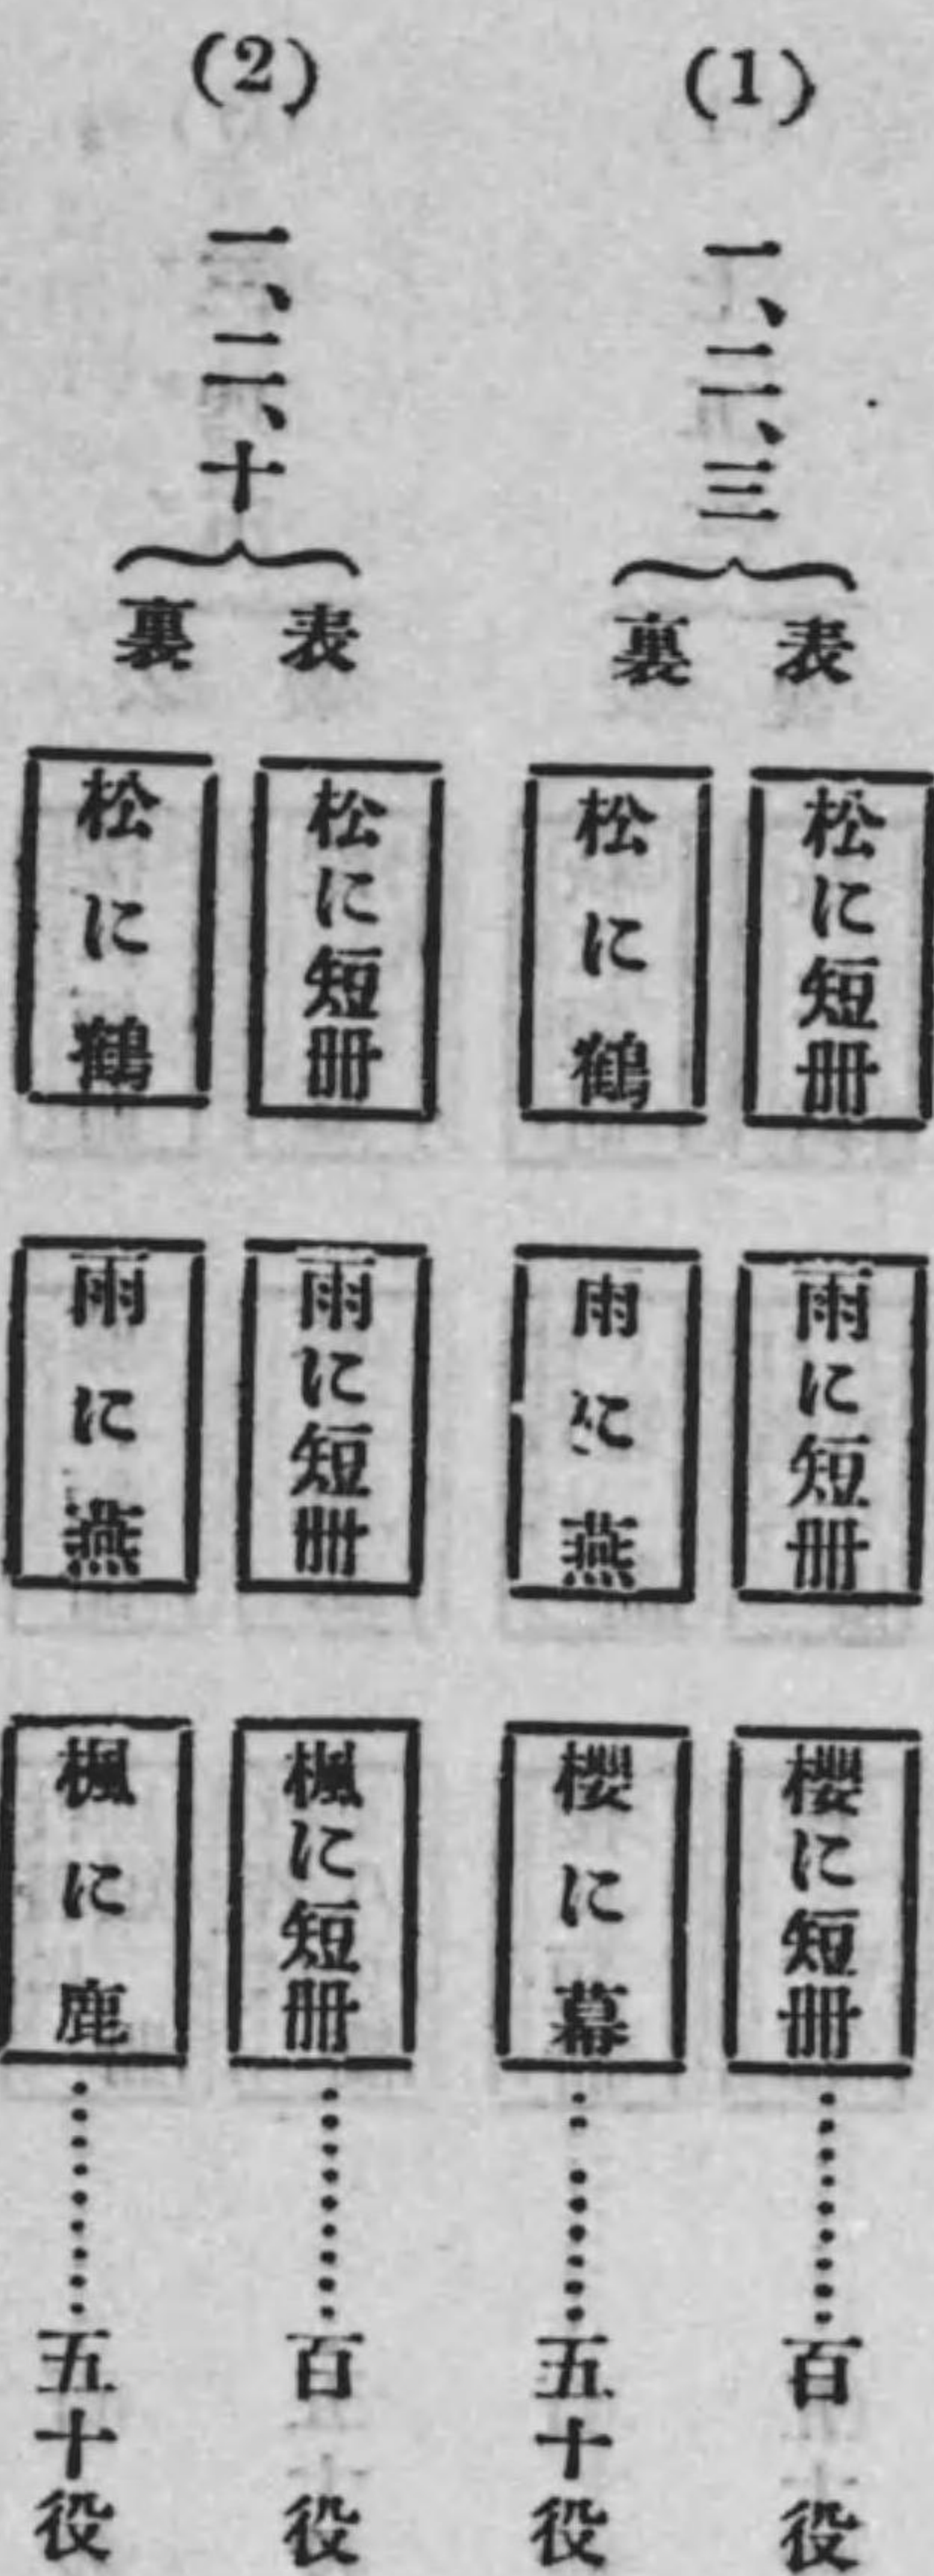 (1)
一、二、三
表
松に短冊
雨に短冊
櫻に短冊
…………百役
裏
松に鶴
雨に燕
櫻に幕
…………五十役
(2)
一、二、十
表
松に短冊
雨に短冊
楓に短冊
…………百役
裏
松に鶴
雨に燕
楓に鹿
…………五十役